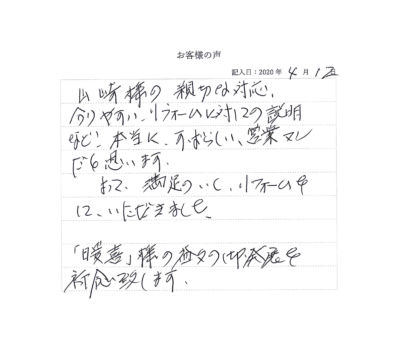 お客様の声
記入日:2020年 4月 1日
山崎様の 親切な対応、
分りやすい、リフォームに対しての説明
など、本当に、すばらしい、営業マン
だと思います。
おかげで、満足のいく、リフォームを
して、いただきました。
「暖喜」様の益々の御発展を
祈念致します。